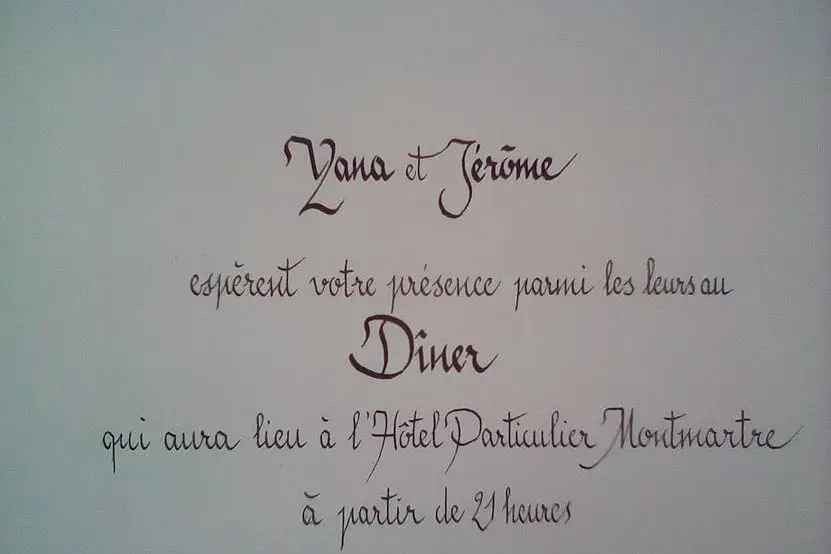 Yana et Jérôme
espèrent votre présence parmi les leurs au
Dîner
qui aura lieu à l'Hôtel Particulier Montmartre
à partir de 21 heures